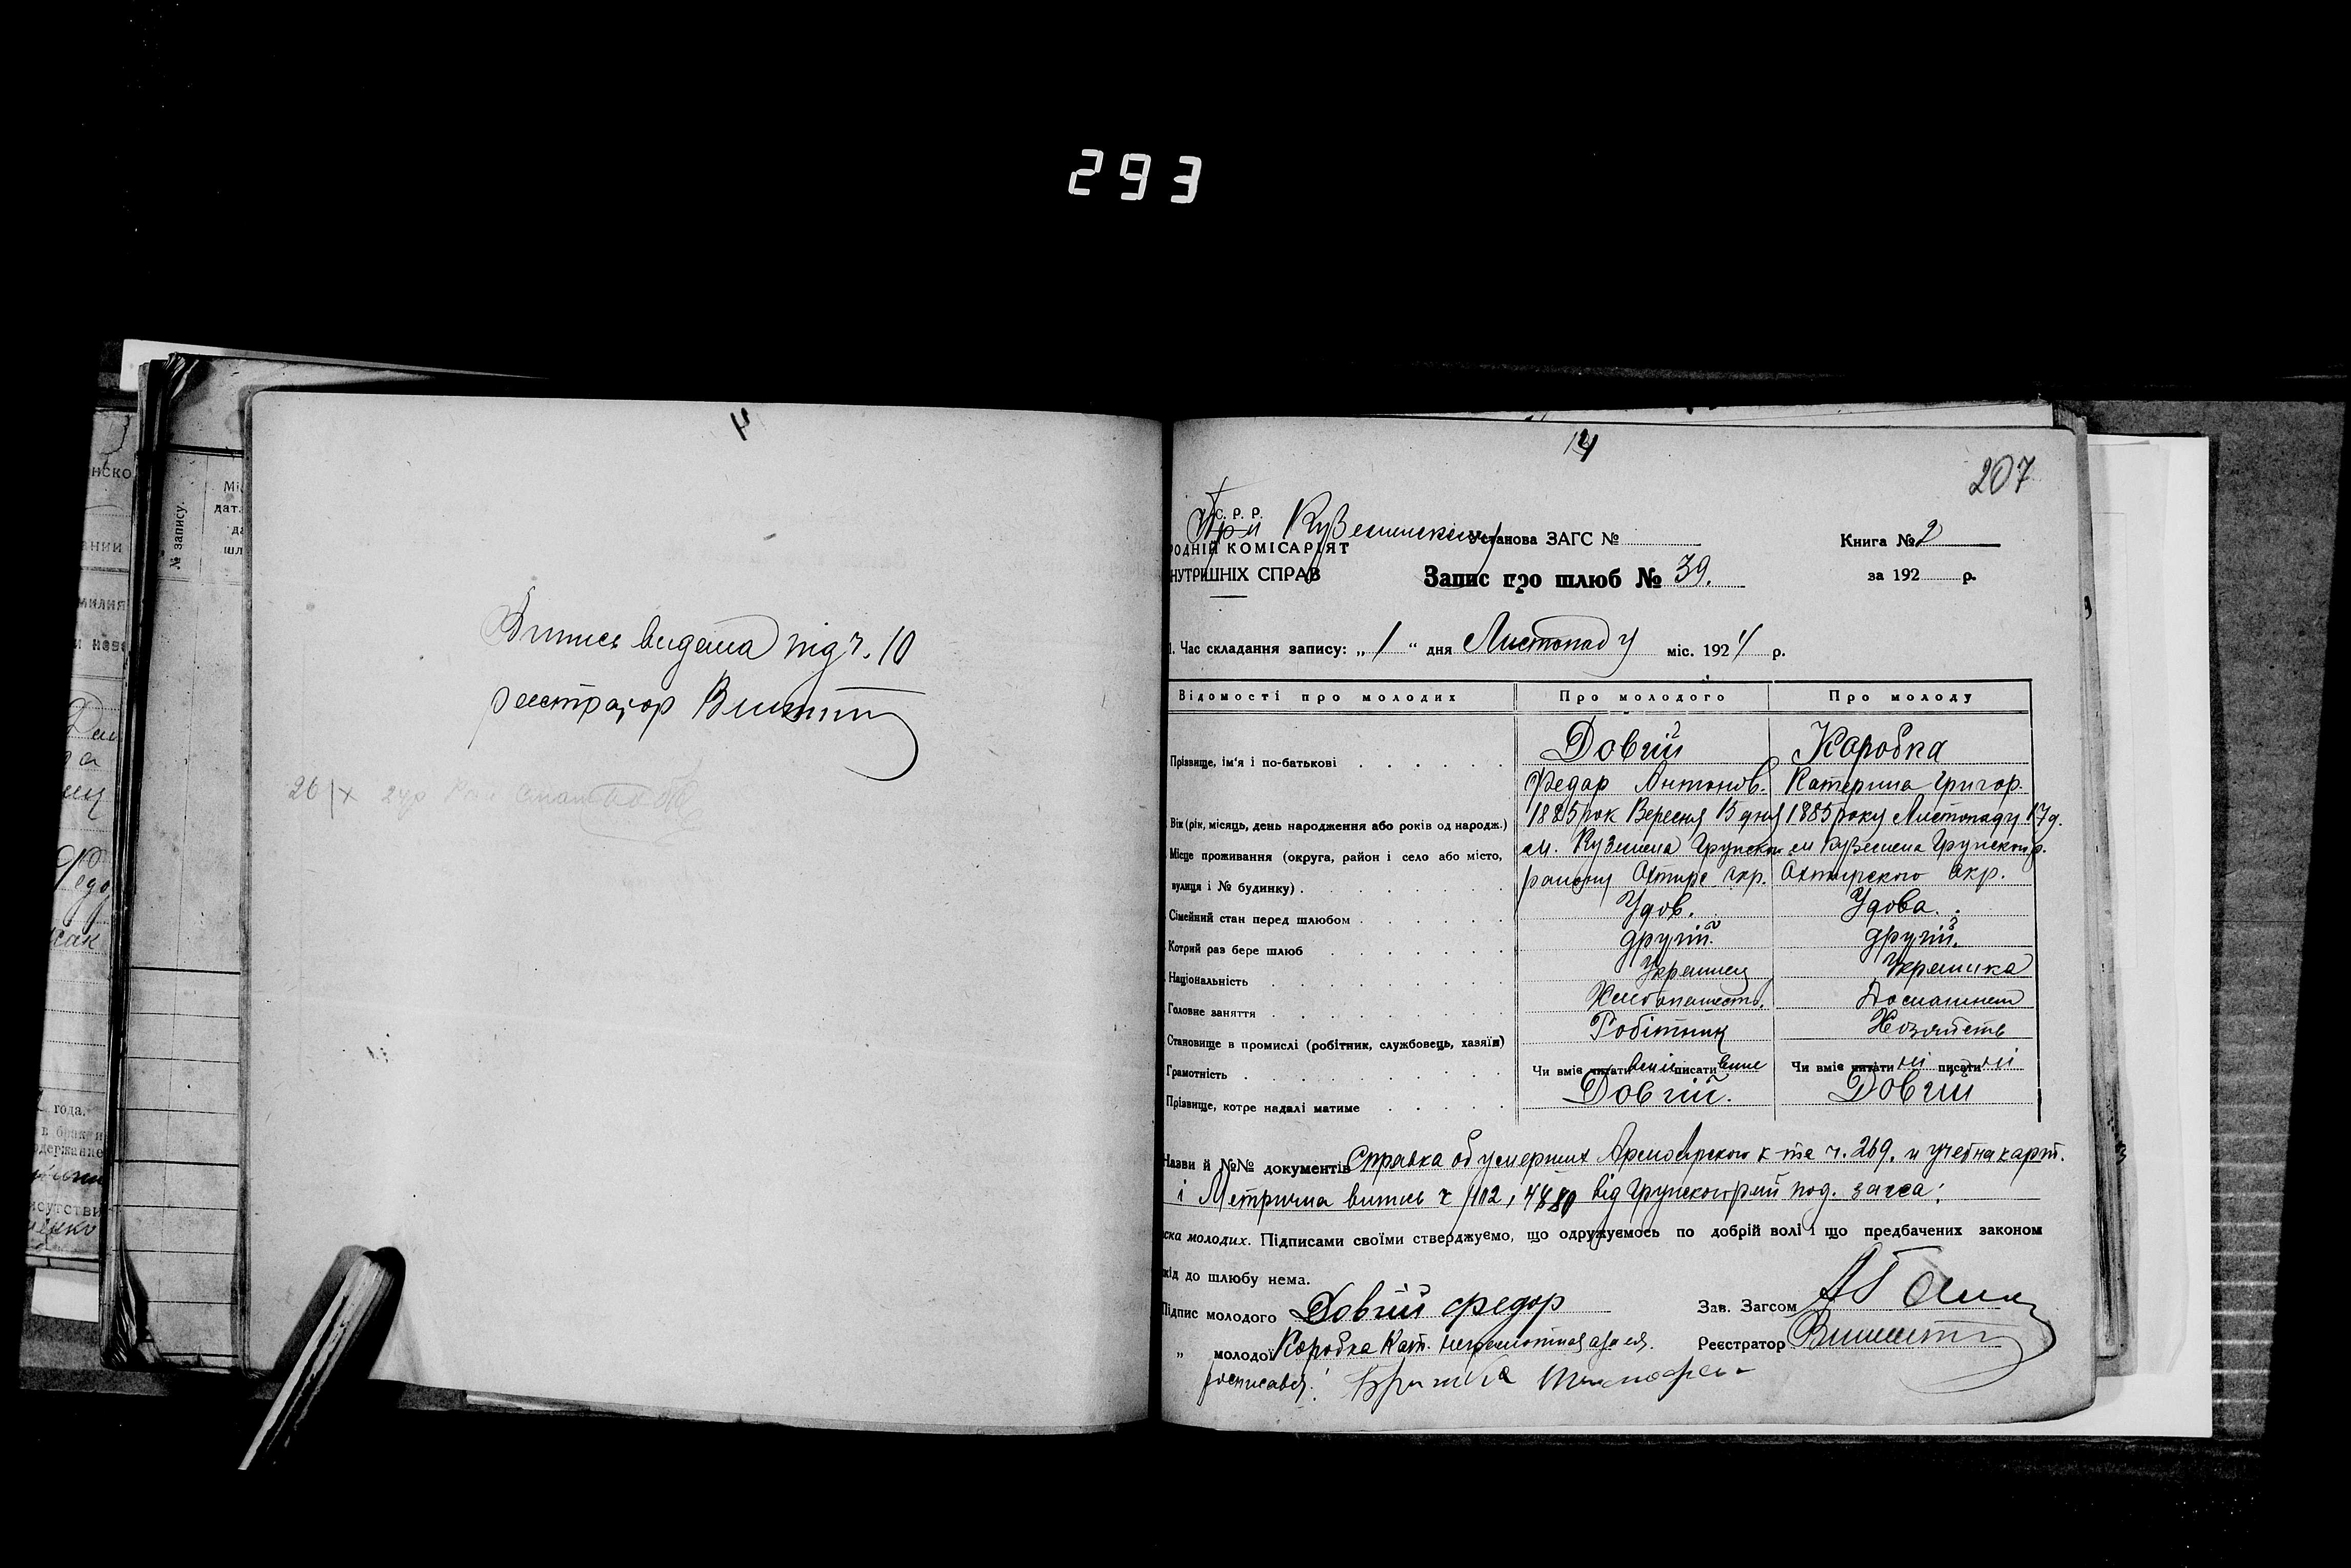 293
Випись видана під ч. 10
реєстратор
26/X
14
207
У. С. Р. Р.
При Куземинском
РОДНІЙ КОМІСАРІЯТ
НУТРІШНІХ СПРАВ
Установа ЗАГС №
Книга № 2
Запис про шлюб № 39.
за 192 р.
1. Час складання запису: „ 1 “ дня Листопаду міс. 1924 р.
Відомості про молодих
Про молодого
Про молоду
Прізвище, ім'я і по-батькові
Довгій
Коробка
Федар Антонов.
Катерина Григор.
Вік (рік, місяць, день народження або років од народж.)
1885 рок Вересня 15 дня
1885 року Листопаду 17 д.
Місце проживання (округа, район і село або місто,
вулиця і № будинку)
см. Куземена Грунско
району Охтирс. акр.
см Куземена Грунског р.
Охтирского акр.
Сімейний стан перед шлюбом
Удов.
Удова.
Котрий раз бере шлюб
другій.
другій.
Національність
Украинец
Украинка
Головне заняття
Хлебопашеств.
Домашнем
Становище в промислі (робітник, службовець, хазяїн)
Робітник
Хозяйств
Грамотність
Чи вміє читати вміє писати вміє
Чи вміє читати ні писати ні
Прізвище, котре надалі матиме
Довгій.
Довгій
Назви й №№ документів Справка об умерших Армавирского к-та ч. 269. и учетна карт.
і Метрична випись ч 402, 4880 від Грунскогорай под. загса.
ска молодих. Підписами своїми стверджуємо, що одружуємось по добрій волі і що предбачених законом
кід до шлюбу нема.
Підпис молодого Довгій Федор
Зав. Загсом
„ молодої Коробка Кат. неграмотная за нея
Реєстратор
росписався